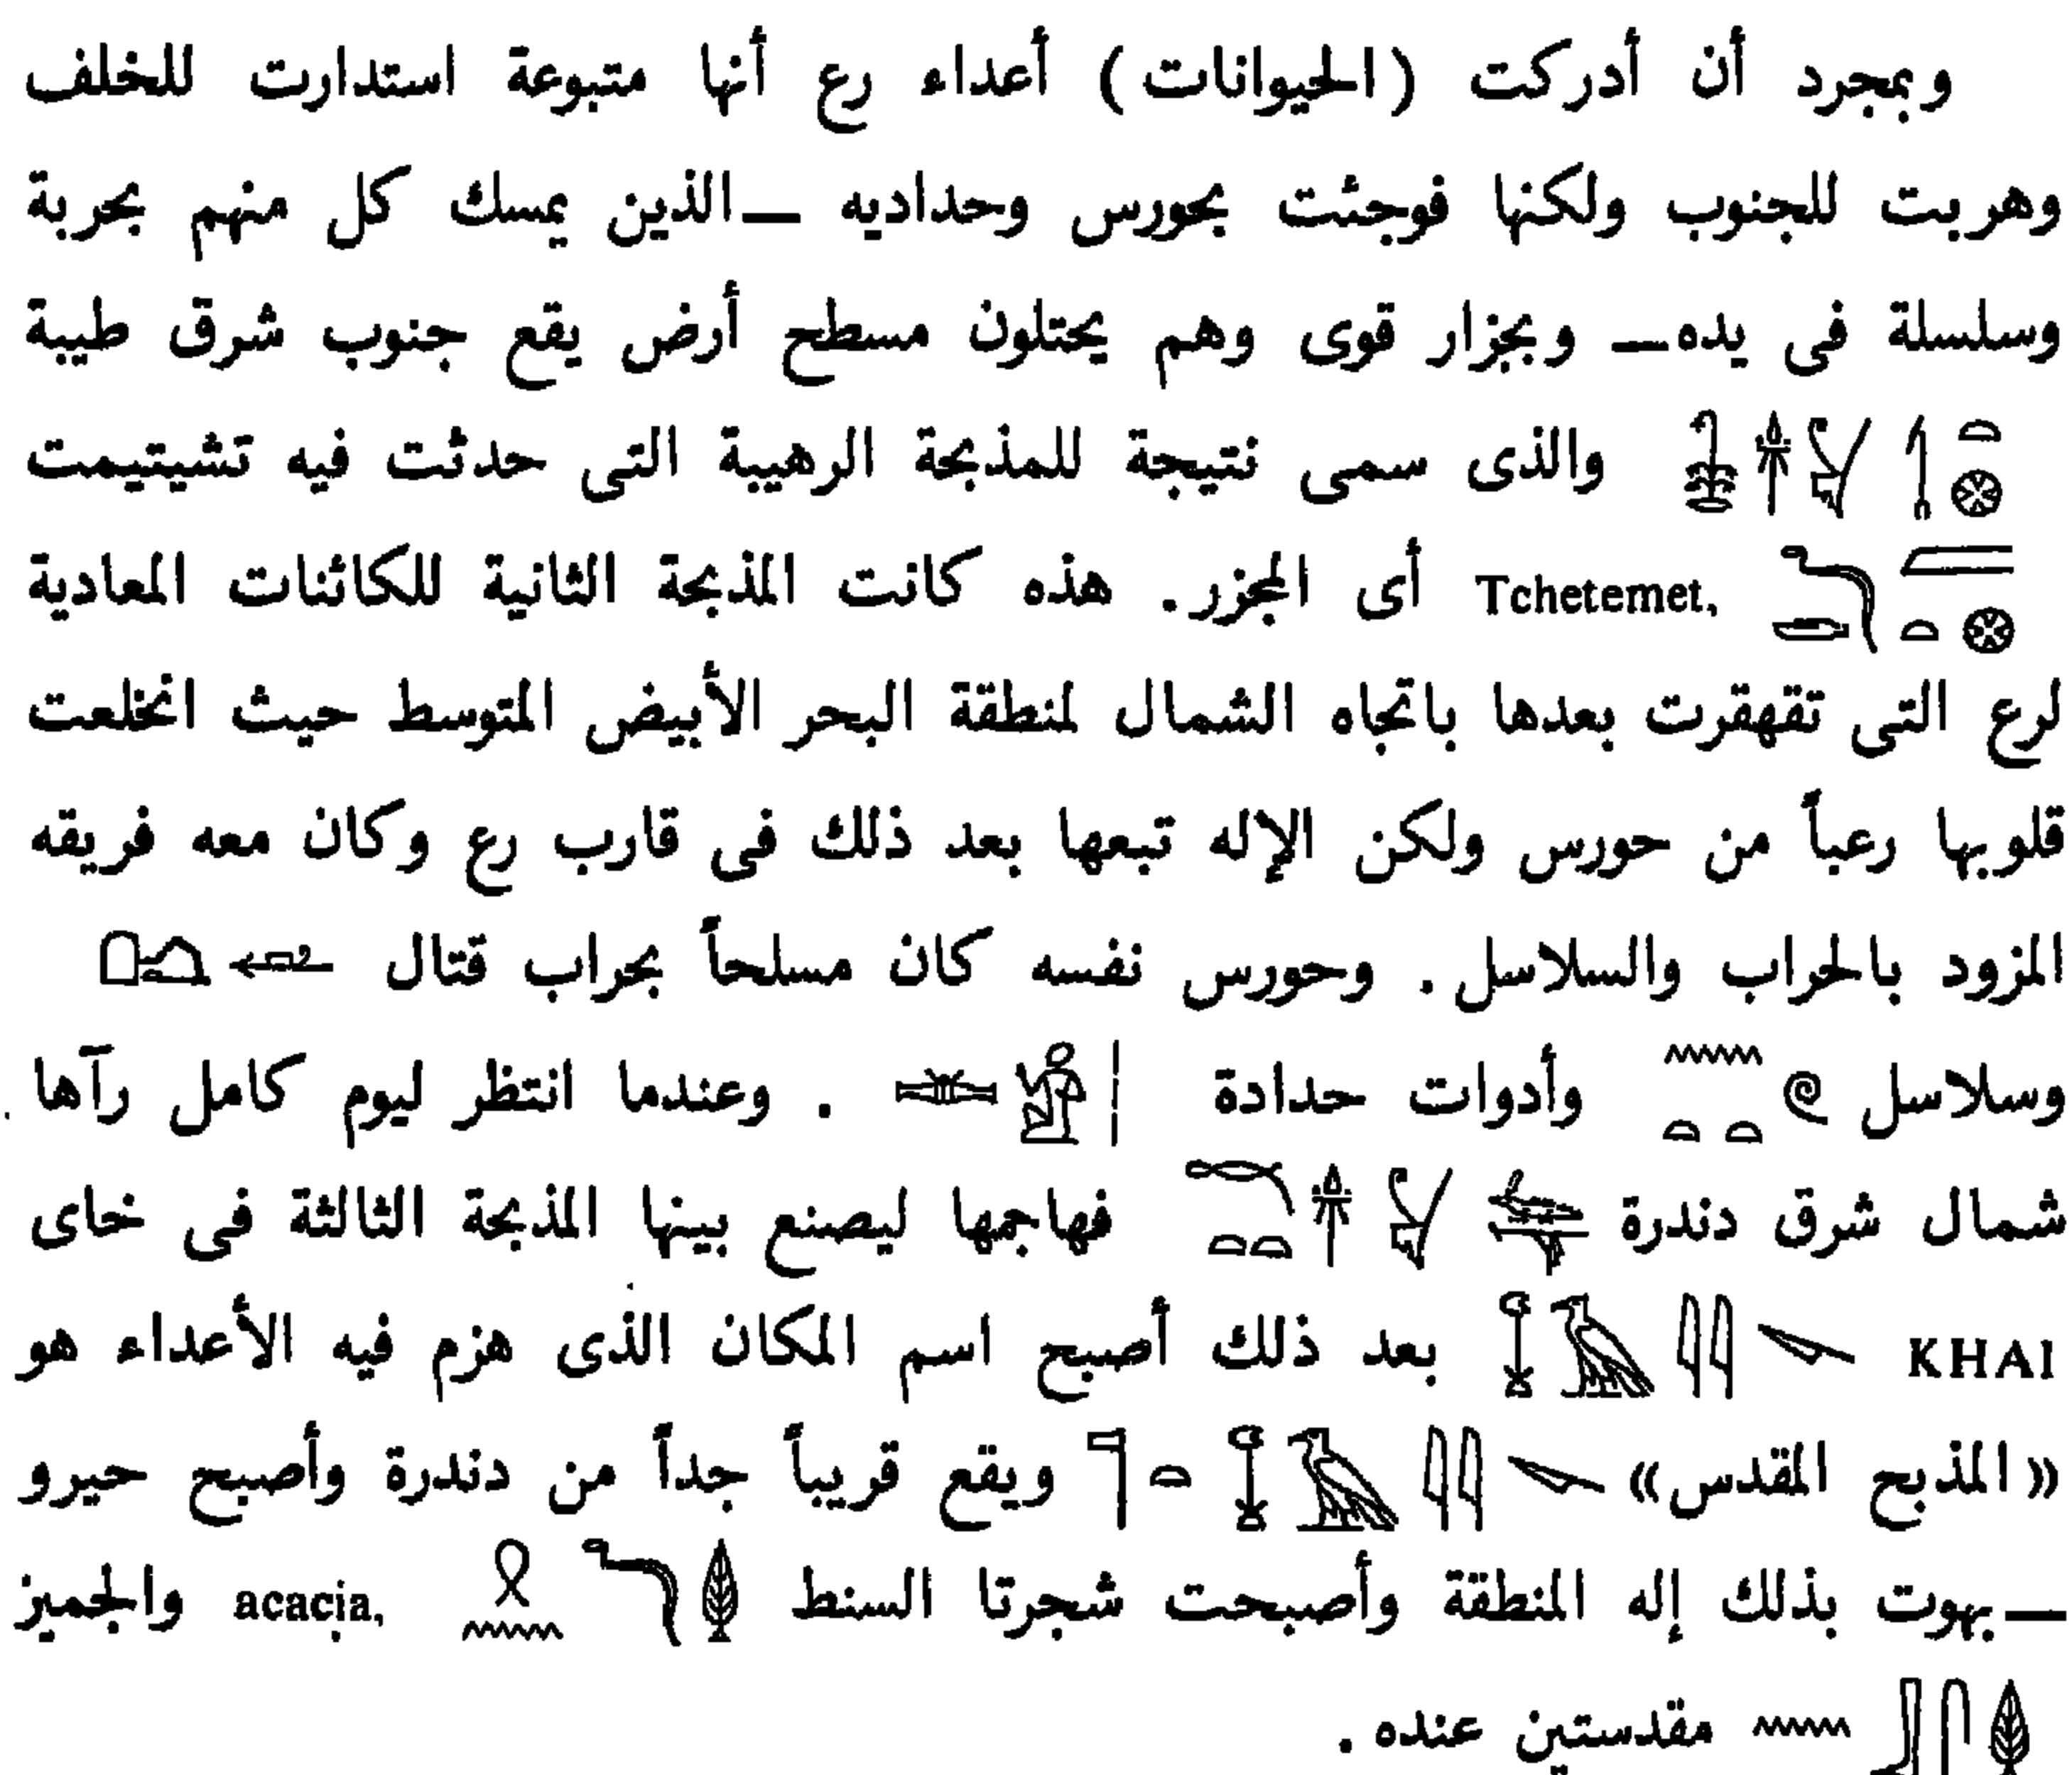 وبمجرد أن أدركت (الحيوانات) أعداء رع أنها متبوعة استدارت للخلف
وهربت للجنوب ولكنها فوجئت بحورس وحداديه ــ الذين يمسك كل منهم بحربة
وسلسلة فى يده ــ وبجزار قوى وهم يحتلون مسطح أرض يقع جنوب شرق طيبة
والذى سمى نتيجة للمذبحة الرهيبة التى حدثت فيه تشيتيمت
Tchetemet, أى المجزر. هذه كانت المذبحة الثانية للكائنات المعادية
لرع التى تقهقرت بعدها باتجاه الشمال لمنطقة البحر الأبيض المتوسط حيث انخلعت
قلوبها رعباً من حورس ولكن الإله تبعها بعد ذلك فى قارب رع وكان معه فريقه
المزود بالحراب والسلاسل. وحورس نفسه كان مسلحاً بحراب قتال
وسلاسل وأدوات حدادة . وعندما انتظر ليوم كامل رآها
شمال شرق دندرة فهاجمها ليصنع بينها المذبحة الثالثة فى خاى
KHAI بعد ذلك أصبح اسم المكان الذى هزم فيه الأعداء هو
«المذبح المقدس» ويقع قريباً جداً من دندرة وأصبح حيرو
ــ بهوت بذلك إله المنطقة وأصبحت شجرتا السنط acacia, والجميز
مقدستين عنده .